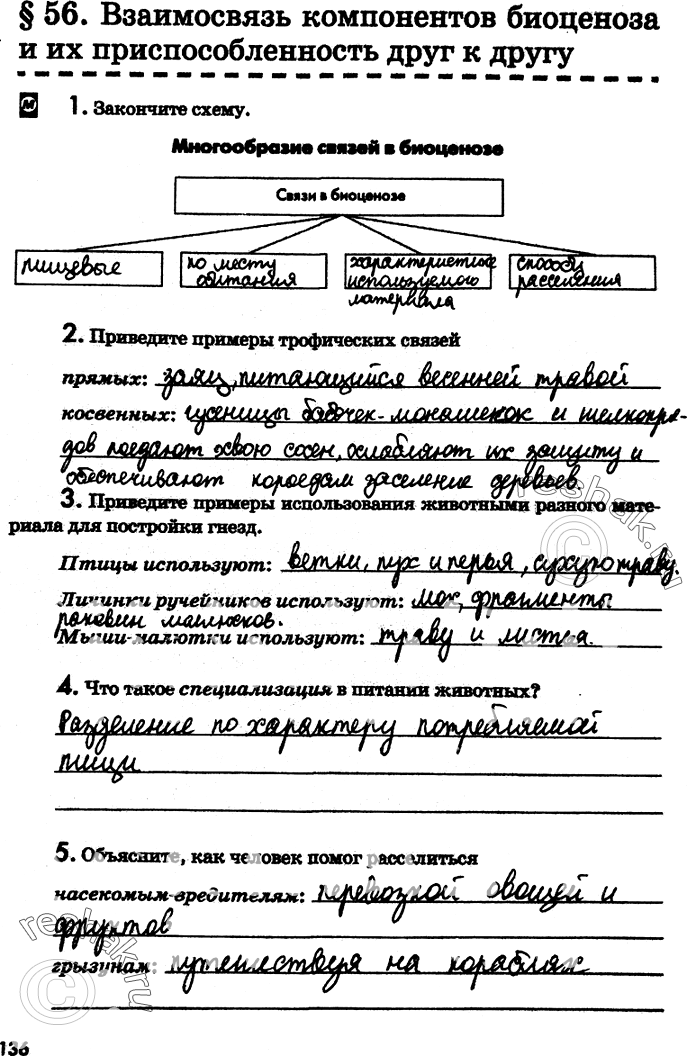 § 56. Взаимосвязь компонентов биоценоза
и их приспособленность друг к другу
1. Закончите схему.
Многообразие связей в биоценозе
Связи в биоценозе
пищевые
по месту
обитания
характеристике
используемого
материала
способу
расселения
2. Приведите примеры трофических связей
прямых: заяц, питающийся весенней травой
косвенных: гусеницы бабочек-монашенок и шелкопря-
дов поедают хвою сосен, ослабляют их защиту и
обеспечивают короедам заселение деревьев.
3. Приведите примеры использования животными разного мате-
риала для постройки гнезд.
Птицы используют: ветки, пух и перья, сухую траву.
Личинки ручейников используют: мох, фрагменты
раковин маллюсков.
Мыши-малютки используют: траву и листья.
4. Что такое специализация в питании животных?
Разделение по характеру потребляемой
пищи
5. Объясните, как человек помог расселиться
насекомым-вредителям: перевозкой овощей и
фруктов
грызунам: путешествуя на кораблях
136
reshak.ru
reshak.ru